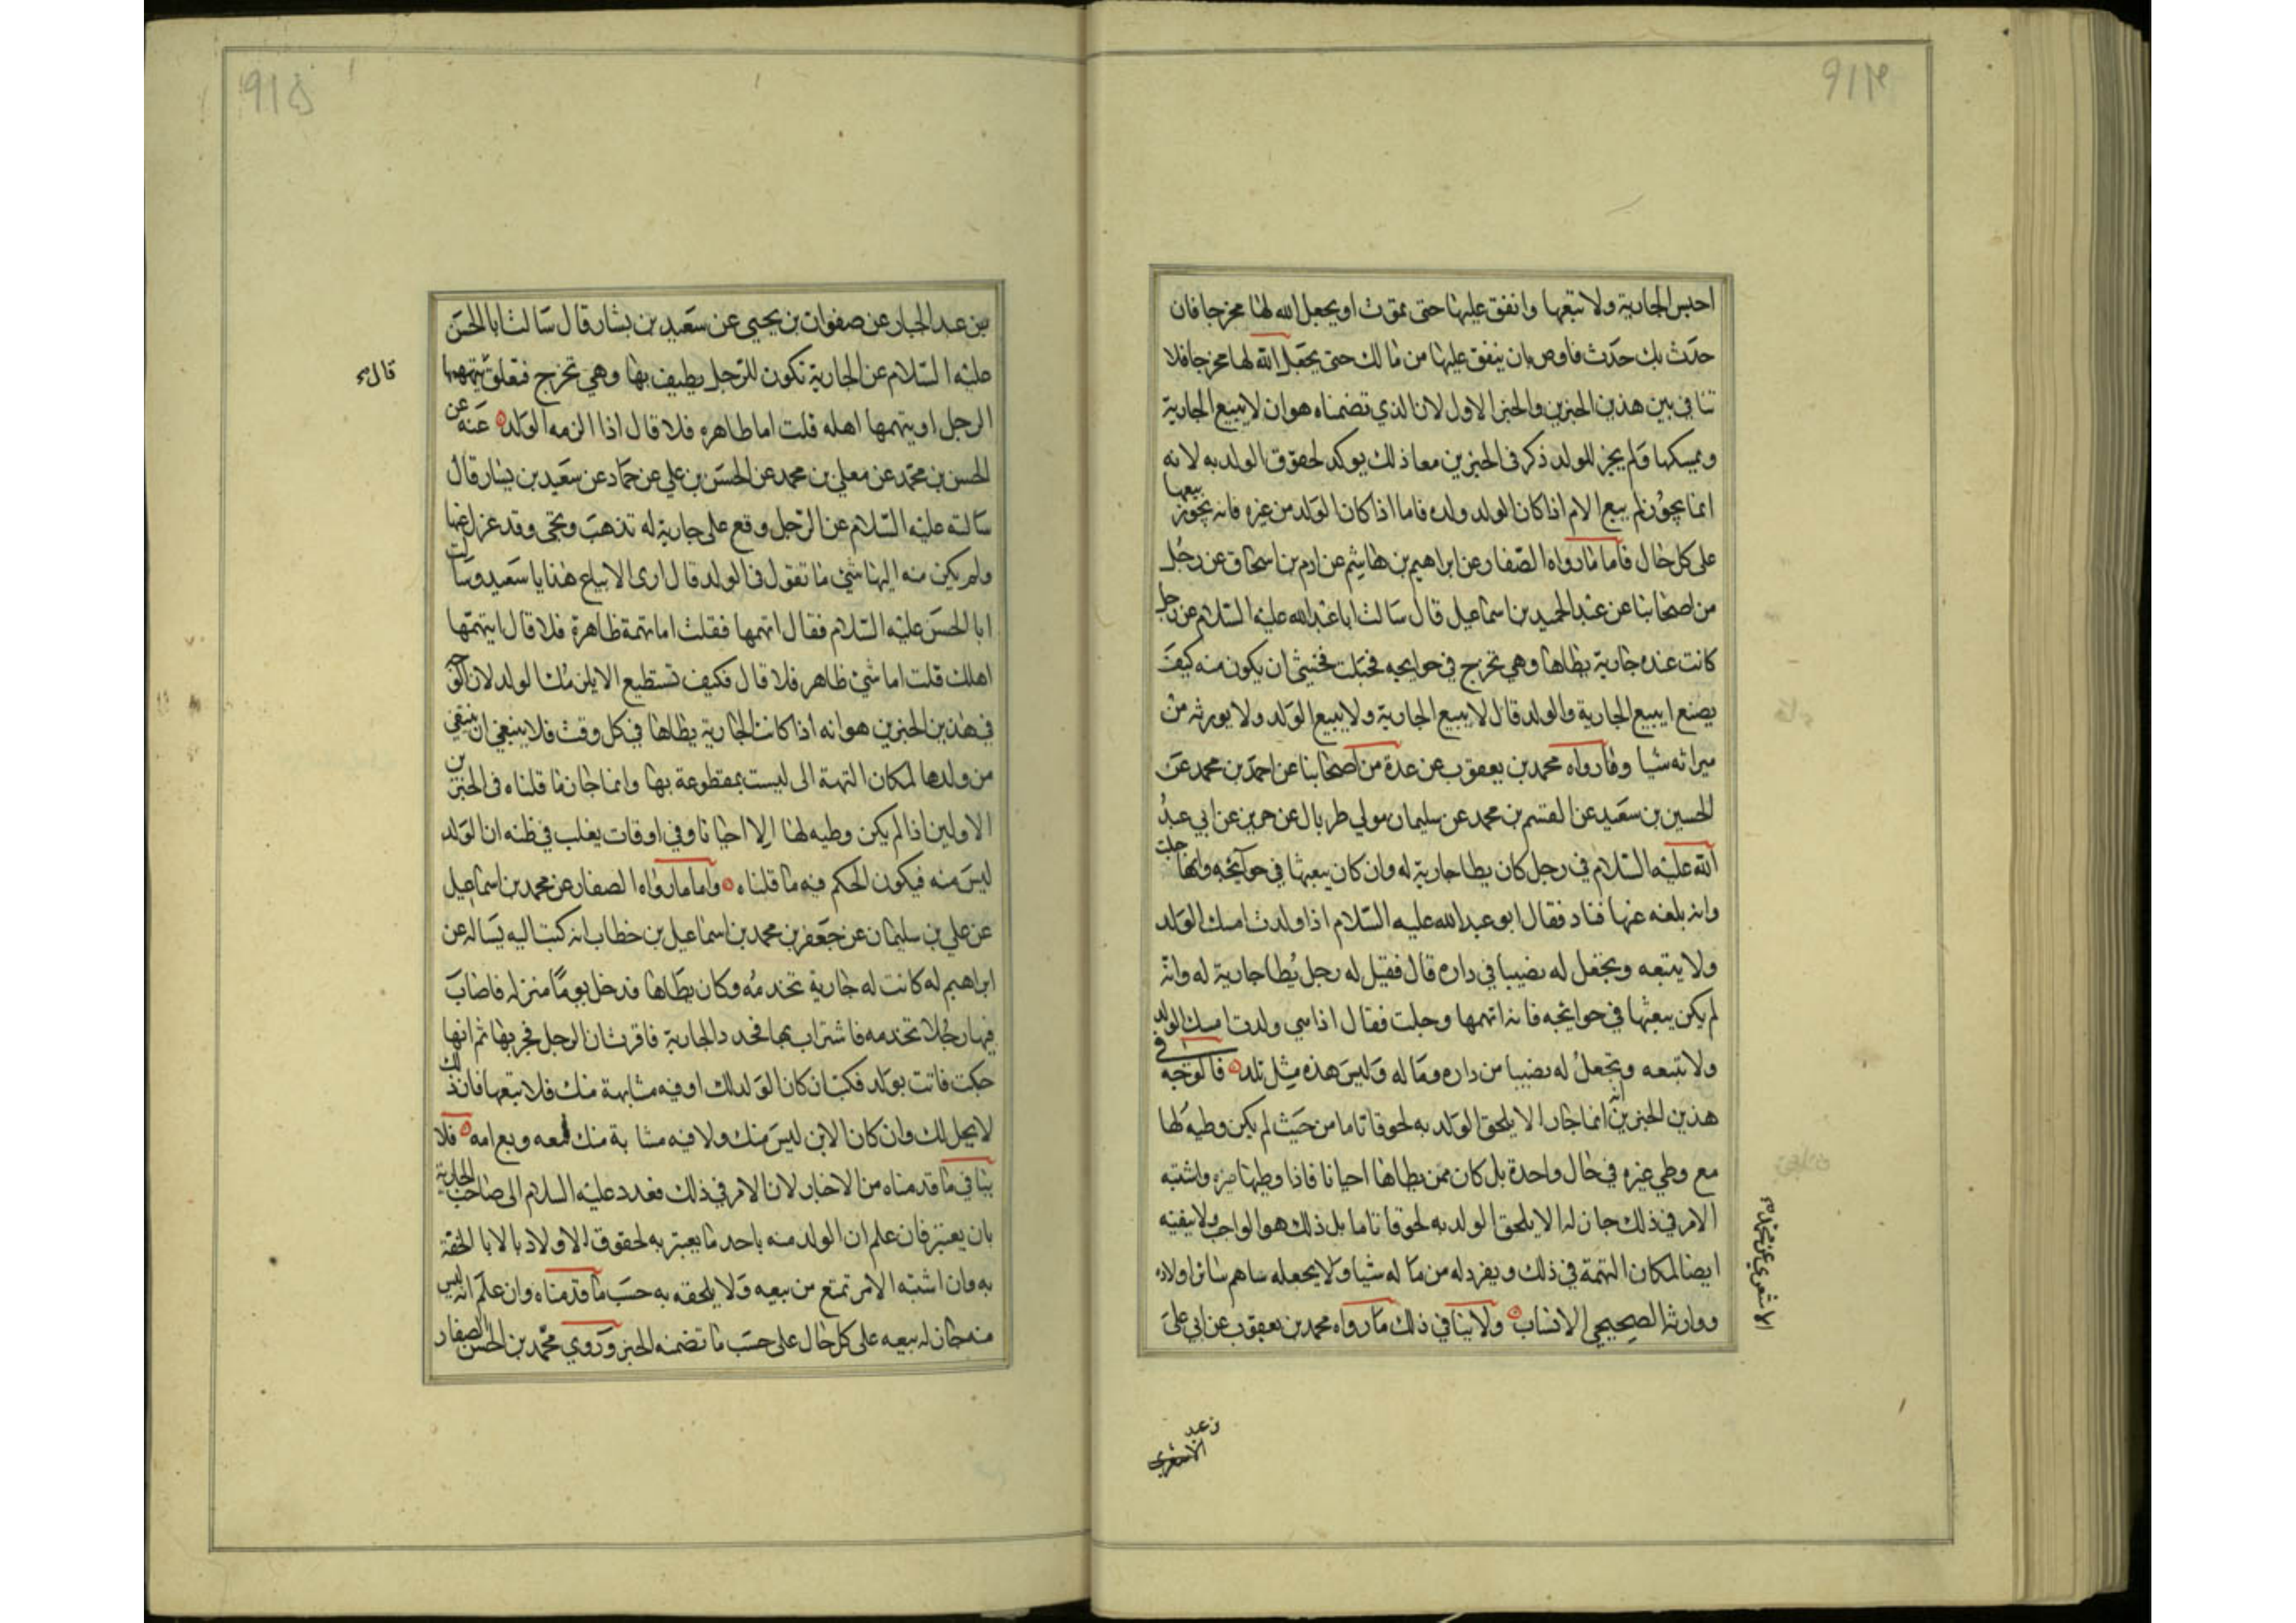 ٩١٤
احبس الجارية ولا تبعها وانفق عليها حتى تموت او يجعل الله لها مخرجا فان
حدث بك حدث فاوص بان ينفق عليها من مالك حتى يجعل الله لها مخرجا فلا
تنافي بين هذين الخبرين والخبر الاول لان الذي تضمناه هو ان لا يبيع الجارية
ويمسكها ولم يجز للولد ذكر في الخبرين معا ذلك يوكد لحقوق الولد به لانه
انما يجوز لم يبع الام اذا كان الولد ولده فاما اذا كان الولد من غيره فانه يجوز بيعها
على كل حال فاما ما رواه الصفار عن ابراهيم بن هاشم عن ادم بن اسحاق عن رجل
من اصحابنا عن عبد الحميد بن اسماعيل قال سالت ابا عبد الله عليه السلام عن رجل
كانت عنده جارية يطاها وهي تخرج في حوايجه فحبلت فخشي ان يكون منه كيف
يصنع ايبيع الجارية والولد قال لا يبيع الجارية ولا يبيع الولد ولا يورثه من
ميراثه شيا وما رواه محمد بن يعقوب عن عدة من اصحابنا عن احمد بن محمد عن
الحسين بن سعيد عن القسم بن محمد عن سليمان مولي طربال عن حريز عن ابي عبد
الله عليه السلام في رجل كان يطا جارية له وان كان يبعثها في حوائجه وانها حبلت
وانه بلغه عنها فساد فقال ابو عبد الله عليه السلام اذا ولدت امسك الولد
ولا يبعه ويجعل له نصيبا في داره قال فقيل له رجل يطا جارية له وانه
لم يكن يبعثها في حوائجه فانه اتهمها وحبلت فقال اذا هي ولدت امسك الولد
ولا تبعه ويجعل له نصيبا من داره وماله وليس هذه مثل تلد فالوجه في
هذين الخبرين انه انما جاز الا يلحق الولد به لحوقا تاما من حيث لم يكن وطيه لها
مع وطي غيره في حال واحدة بل كان ممن يطاها احيانا فاذا وطيها غيره واشتبه
الامر في ذلك جاز له الا يلحق الولد به لحوقا تاما بل ذلك هو الواجب ولا ينفيه
ايضا لمكان التهمة في ذلك ويفرد له من ماله شيا ولا يجعله ساهم سائر اولاده
ووارثه الصحيحي الانساب ولا ينافي ذلك ما رواه محمد بن يعقوب عن ابي علي
الاشعري عن محمد
ن عبد
الاشعري
٩١٥
بن عبد الجبار عن صفوان بن يحيى عن سعيد بن بشار قال سالت ابا الحسن
عليه السلام عن الجارية تكون للرجل يطيف بها وهي تخرج فتعلق يتهمها
قال
الرجل او يتهمها اهله قلت اما ظاهره فلا قال اذا الزمه الولد عنه عن
الحسن بن محمد عن معلي بن محمد عن الحسن بن علي عن حماد عن سعيد بن يسار قال
سالته عليه السلام عن الرجل وقع على جارية له تذهب وتجى وقد عزل عنها
ولم يكن منه اليها شئ ما تقول في الولد قال ارى الا يباع هذا يا سعيد وسالت
ابا الحسن عليه السلام فقال اتهمها فقلت اما تهمة ظاهرة فلا قال ايتهمها
اهلك قلت اما شئ ظاهر فلا قال فكيف تستطيع الا يلزمك الولد لان الوجه
في هذين الخبرين هو انه اذا كانت الجارية يطاها في كل وقت فلا ينبغي ان ينتفي
من ولدها لمكان التهمة التى ليست بمقطوعة بها وانما جاز ما قلناه في الخبرين
الاولين اذا لم يكن وطيه لها الا احيانا وفي اوقات يغلب في ظنه ان الولد
ليس منه فيكون الحكم فيه ما قلناه واما ما رواه الصفار عن محمد بن اسماعيل
عن علي بن سليمان عن جعفر بن محمد بن اسماعيل بن خطاب انه كتب اليه يساله عن
ابراهيم له كانت له جارية تخدمه وكان يطاها فدخل يوما منزله فاصاب
فيها رجلا تخدمه فاستراب بها فهدد الجارية فاقرت ان الرجل فجر بها ثم انها
حبلت فاتت بولد فكتب ان كان الولد لك او فيه مشابهة منك فلا تبعها فان ذلك
لا يحل لك وان كان الابن ليس منك ولا فيه مشابة منك فبعه وبع امه فلا
ينافي ما قدمناه من الاخبار لان الامر في ذلك فعدد عليه السلام الى صاحب الجارية
بان يعتبر فان علم ان الولد منه باحد ما يعتبر به لحقوق الاولاد بالابا الحقه
به وان اشتبه الامر تمتع من بيعه ولا يلحقه به حسب ما قدمناه وان علم انه ليس
منه جاز له بيعه على كل حال على حسب ما تضمنه الخبر وروي محمد بن الحسن الصفار